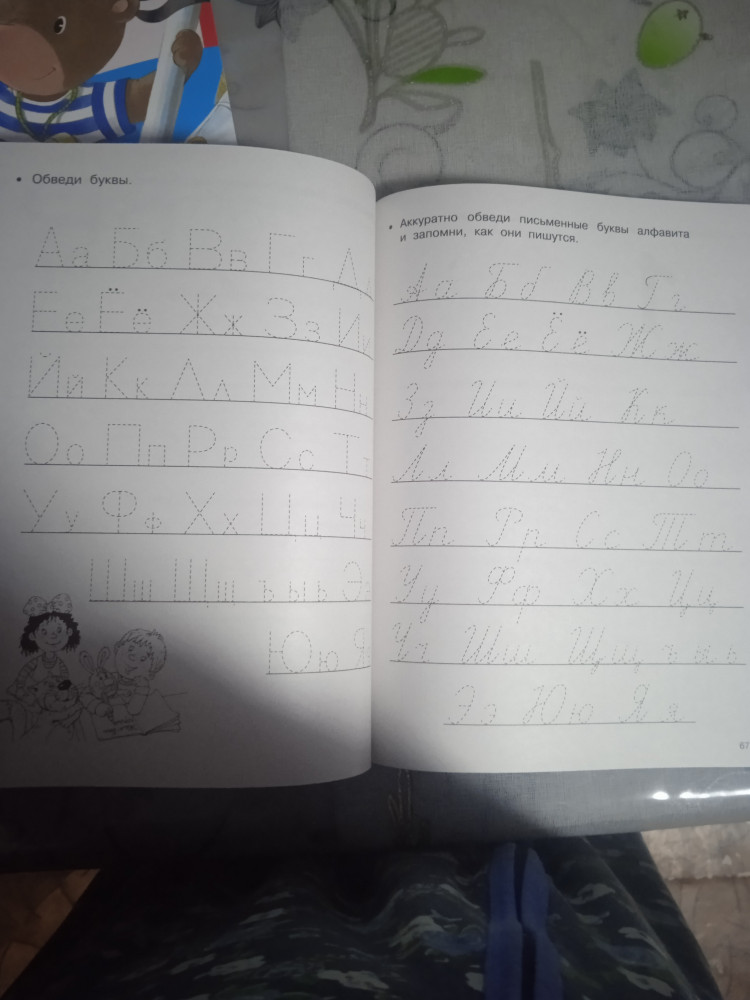 • Обведи буквы.
Аа Бб Вв Гг Д
Ее Ёё Жж Зз И
Йй Кк Лл Мм Нн
Оо Пп Рр Сс Тт
Уу Фф Хх Цц Чч
Шш Щщ ъ ы ь Ээ
Юю Я
• Аккуратно обведи письменные буквы алфавита
и запомни, как они пишутся.
Аа Бб Вв Гг
Дд Ее Ёё Жж
Зз Ии Йй Кк
Лл Мм Нн Оо
Пп Рр Сс Тт
Уу Фф Хх Цц
Чч Шш Щщ ъ ы ь
Ээ Юю Яя
67